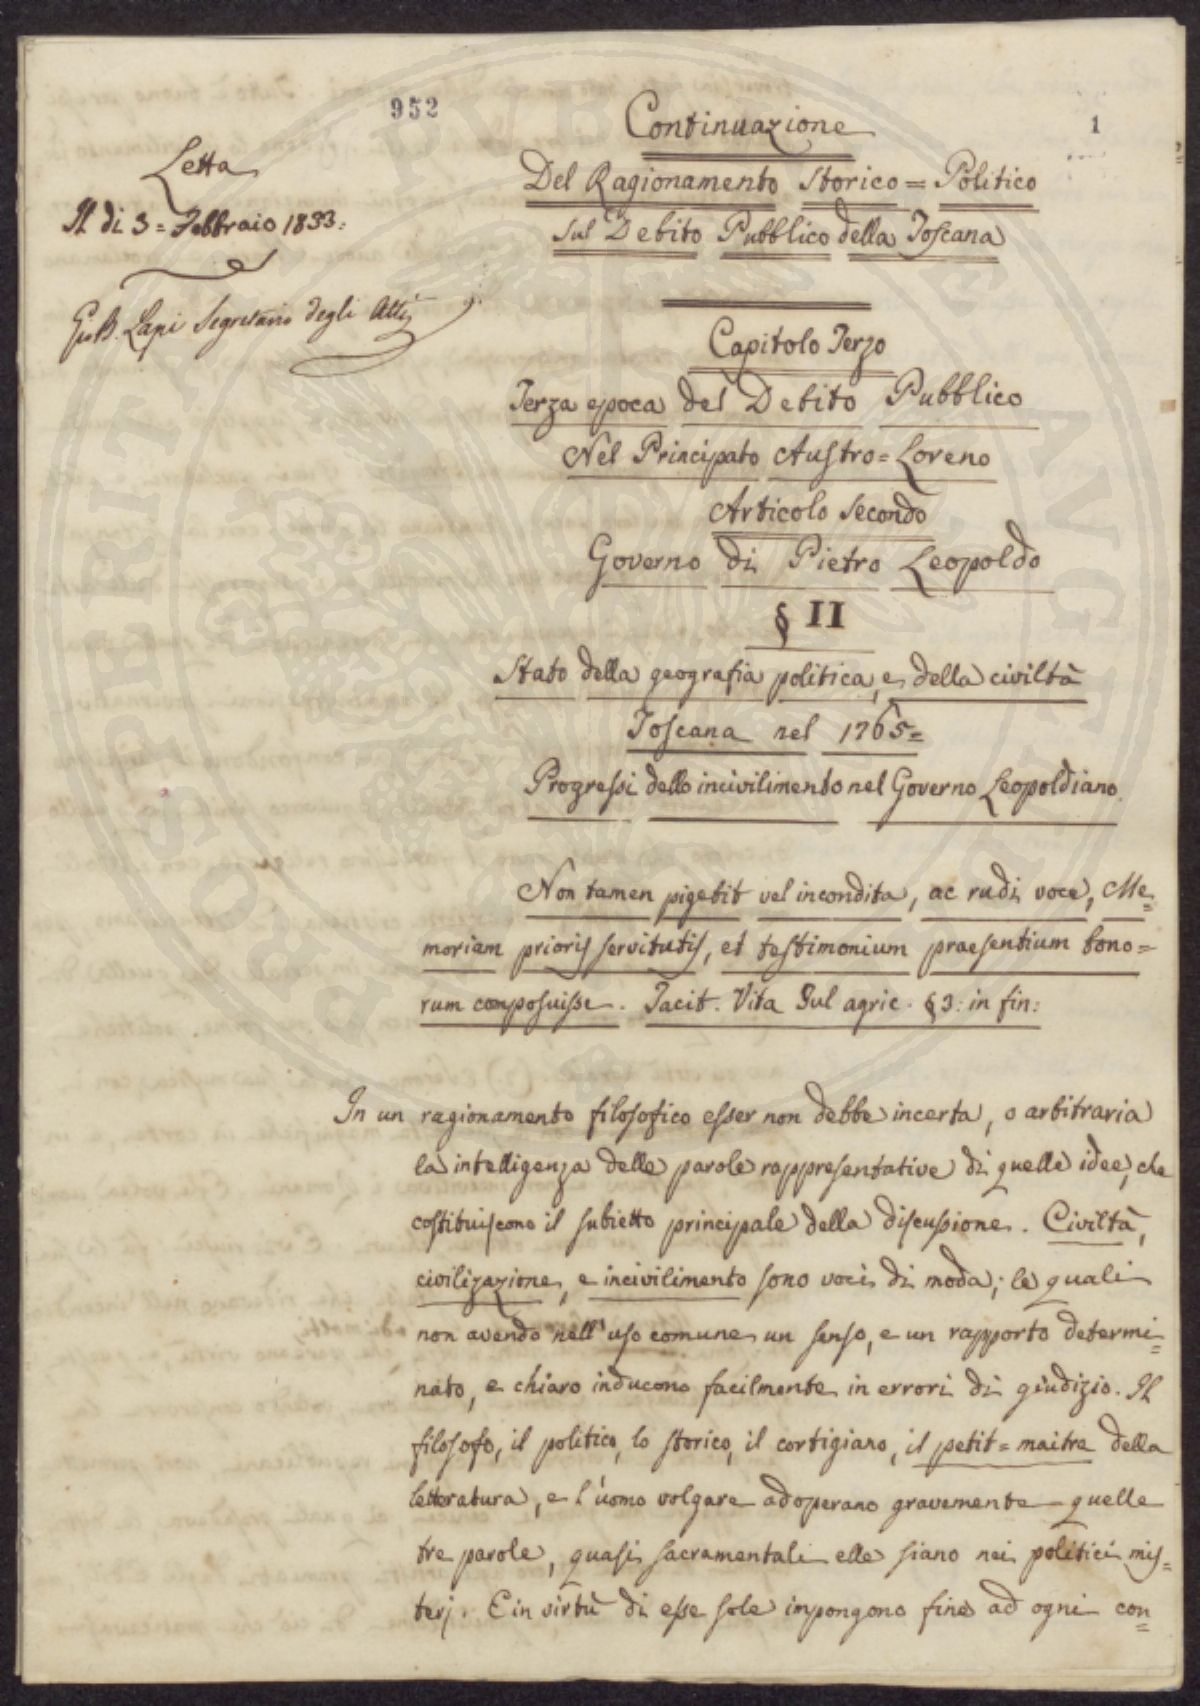 952
1
Letta
Il di 3= Febbraio 1833:
G.B. Lapi Segretario degli Atti
Continuazione
Del Ragionamento Storico=Politico
sul Debito Pubblico della Toscana
Capitolo Terzo
Terza epoca del Debito Pubblico
Nel Principato Austro=Loreno
Articolo Secondo
Governo di Pietro Leopoldo
§ II
Stato della geografia politica, e della civiltà
Toscana nel 1765=
Progressi dello incivilimento nel Governo Leopoldiano.
Non tamen pigebit vel incondita, ac rudi voce, Me=
moriam prioris servitutis, et testimonium praesentium bono=
rum composuisse. Tacit. Vita Jul agric. §3: in fin:
In un ragionamento filosofico esser non debbe incerta, o arbitraria
la intelligenza delle parole rappresentative di quelle idee, che
costituiscono il subietto principale della discussione. Civiltà,
civilizazione, e incivilimento sono voci di moda; le quali
non avendo nell'uso comune un senso, e un rapporto determi=
nato, e chiaro inducono facilmente in errori di giudizio. Il
filosofo, il politico, lo storico, il cortigiano, il petit=maitre della
letteratura, e l'uomo volgare adoperano gravemente quelle
tre parole, quasi sacramentali elle siano nei politici mis=
terj. E in virtù di esse sole impongono fine ad ogni con=
PROSPERITATI PUBLICAE AUGENDAE